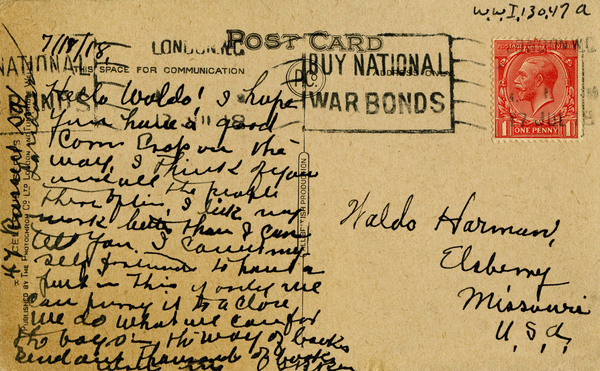 W.W.I, 130.47a
7/18/18,
LONDON. W.C.
POST CARD
THIS SPACE FOR COMMUNICATION
ADDRESS ONLY
NATIONAL
BUY NATIONAL
WAR BONDS
ONE PENNY
1 1
Hello Waldo! I hope
you have a good
Corn Crop on the
way, I think of you
and all the people
there often, I like my
work better than I can
tell you. I count my
self fortunate to have a
part in this if only we
can bring it to a close
we do what we can for
the boys in the way of books
send out thousands of books
Waldo Harman,
Elsberry
Missouri
U.S.A.
PUBLISHED BY THE PHOTOCHROM CO. LTD. LONDON
BRITISH PRODUCTION